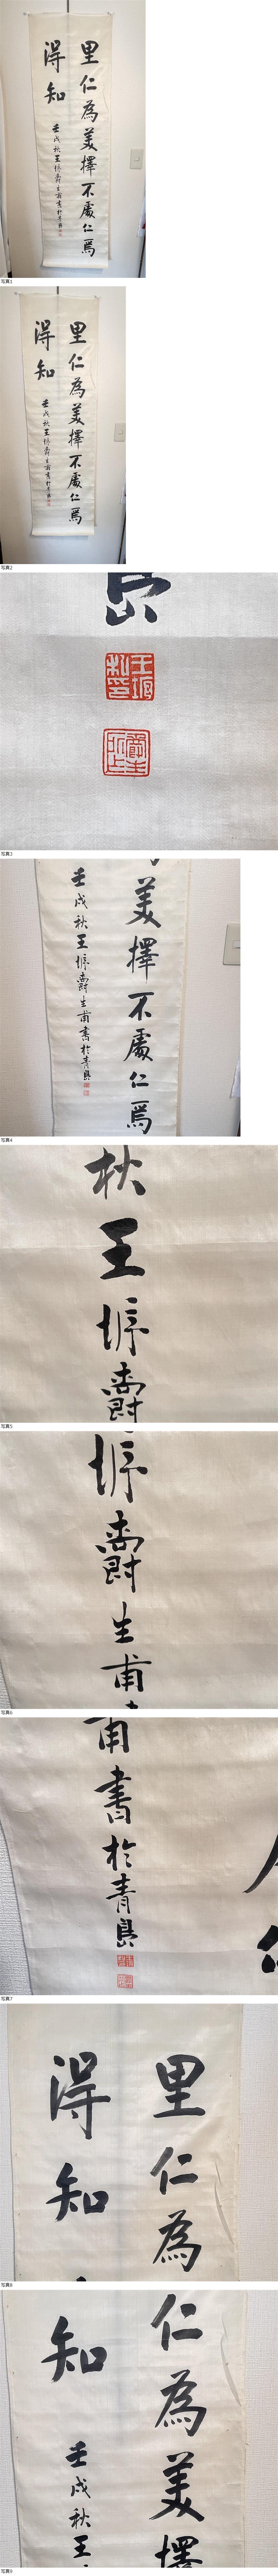 里仁為美擇不處仁焉
得知
壬戌秋王垿爵生甫書於青島
写真1
里仁為美擇不處仁焉
得知
壬戌秋王垿爵生甫書於青島
写真2
王垿
私印
爵生
写真3
美擇不處仁焉
壬戌秋王垿爵生甫書於青島
写真4
秋王垿爵
写真5
垿爵生甫
写真6
甫書於青島
写真7
里仁為
得知
写真8
仁為美擇
知
壬戌秋王
写真9